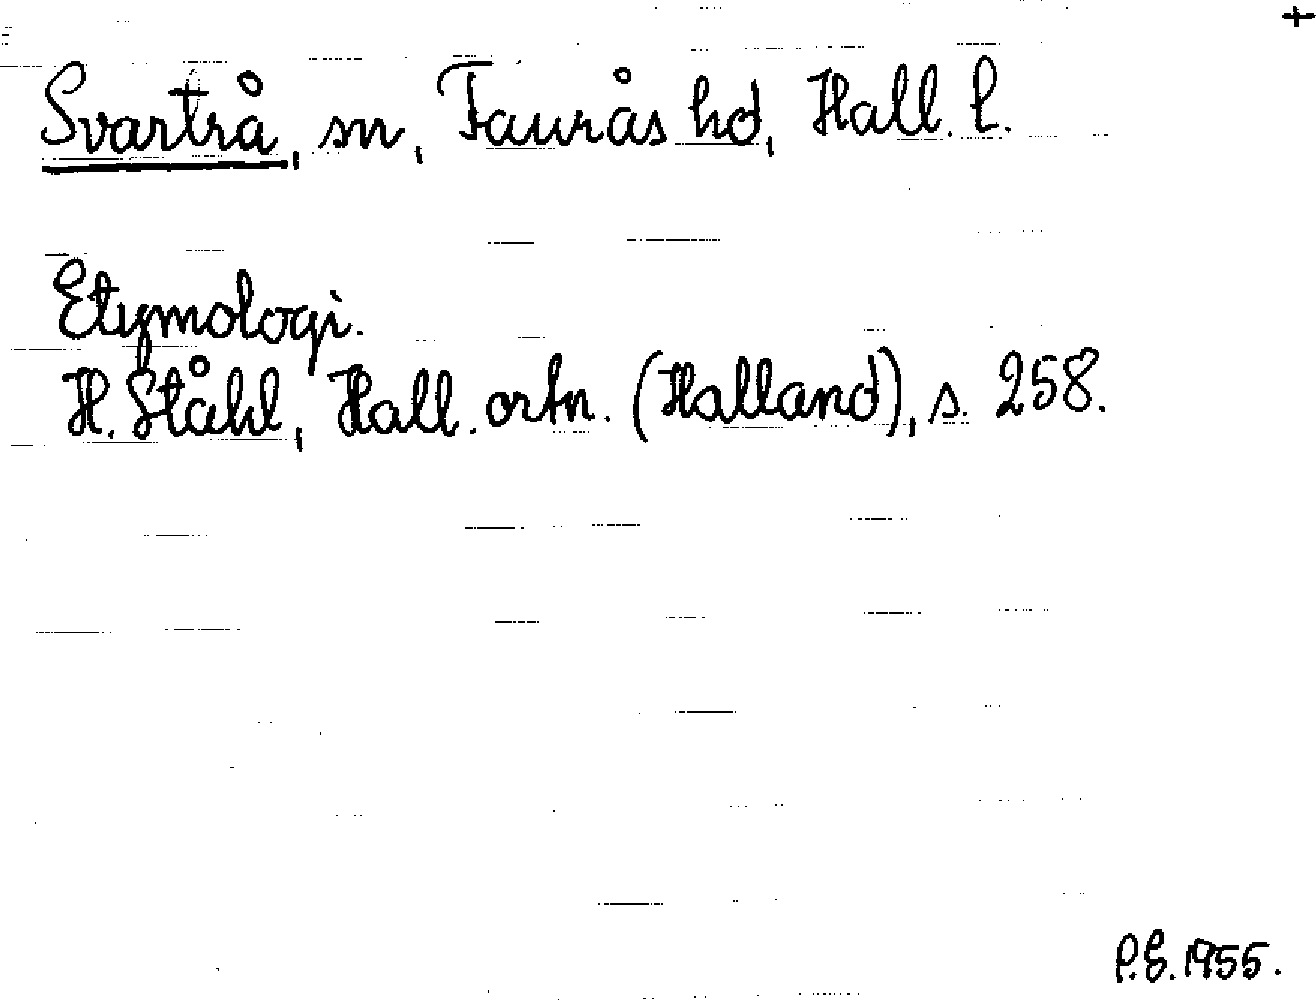 +
Svartrå, sn, Faurås hd, Hall. l.
Etymologi.
H. Ståhl, Hall. ortn. (Halland), s. 258.
P.E. 1955.